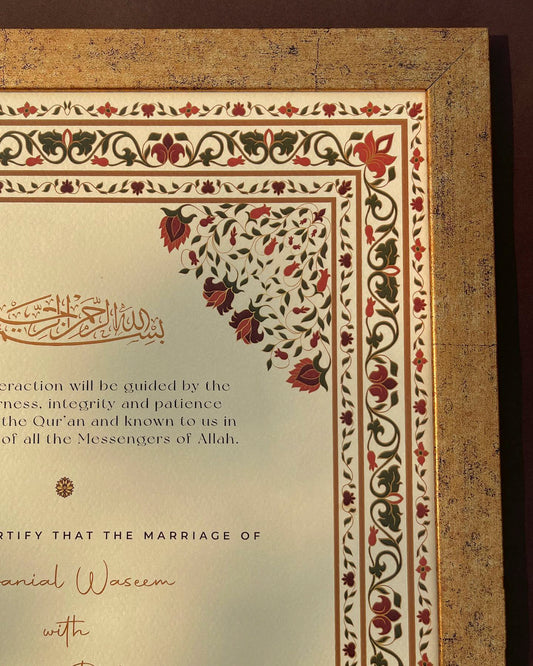 بسم الله الرحمن الرحيم
eraction will be guided by the
rness, integrity and patience
the Qur'an and known to us in
of all the Messengers of Allah.
RTIFY THAT THE MARRIAGE OF
anial Waseem
with